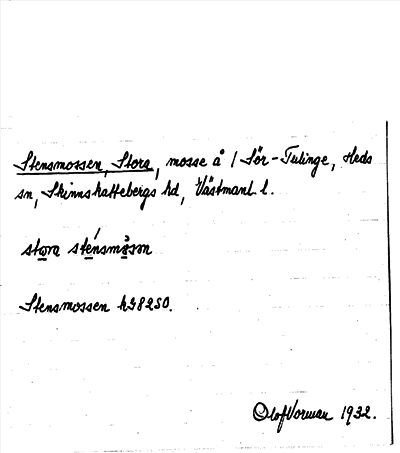 Stensmossen, Stora, mosse å / Sör-Tulinge, Heds
sn, Skinnskattebergs hd, Västmanl. l.
stora sténsmåsɷn
Stensmossen hg82SO.
Olof Vorman 1932.